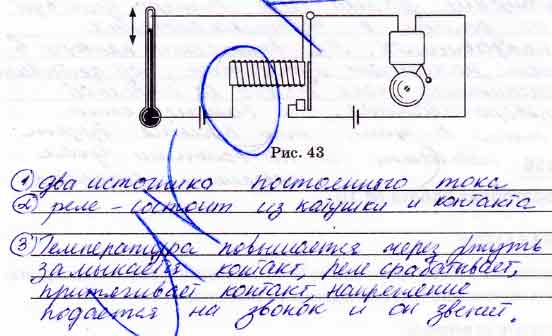 Рис. 43
① два источника постоянного тока
② реле – состоит из катушки и контакта
③ Температура повышается через ртуть
замыкается контакт, реле срабатывает,
притягивает контакт, напряжение
подается на звонок и он звенит.